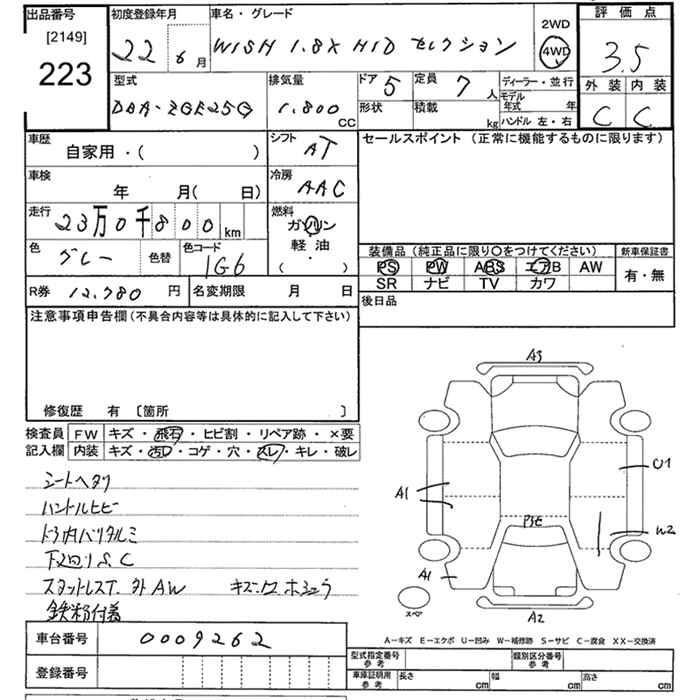 出品番号
[2149]
223
初度登録年月
22 6月
車名・グレード
WISH 1.8X HID セレクション
2WD
4WD
評価点
3.5
外装 内装
C C
型式
DBA-ZGE25G
排気量
1.800
CC
ドア 5
定員 7 人
形状
積載
kg
ディーラー・並行
モデル
年式 年
ハンドル 左・右
車歴
自家用・( )
シフト
AT
車検
年 月( 日)
冷房
AAC
走行
23万0千800 km
燃料
ガソリン
軽油
( ・ )
色
グレー
色替
色コード
1G6
R券 12.780 円
名変期限 月 日
セールスポイント (正常に機能するものに限ります)
装備品(純正品に限り○をつけてください)
新車保証書
PS PW ABS エアB AW
有・無
SR ナビ TV カワ
後日品
注意事項申告欄(不具合内容等は具体的に記入して下さい)
修復歴 有 〔箇所 〕
検査員 FW キズ・飛石・ヒビ割・リペア跡・×要
記入欄 内装 キズ・汚レ・コゲ・穴・スレ・キレ・破レ
シートヘタリ
ハンドルヒビ
ドラ内バリタルミ
下廻りS.C
スタットレスT. 外AW キズ・ワレ ホシュウ
鉄粉付着
A3
U1
A1
P3E
W2
A1
スペア
A2
A－キズ E－エクボ U－凹み W－補修跡 S－サビ C－腐食 XX－交換済
車台番号 0009262
登録番号
型式指定番号
参考
類別区分番号
参考
車庫証明用
参考
長さ cm
幅 cm
高さ cm